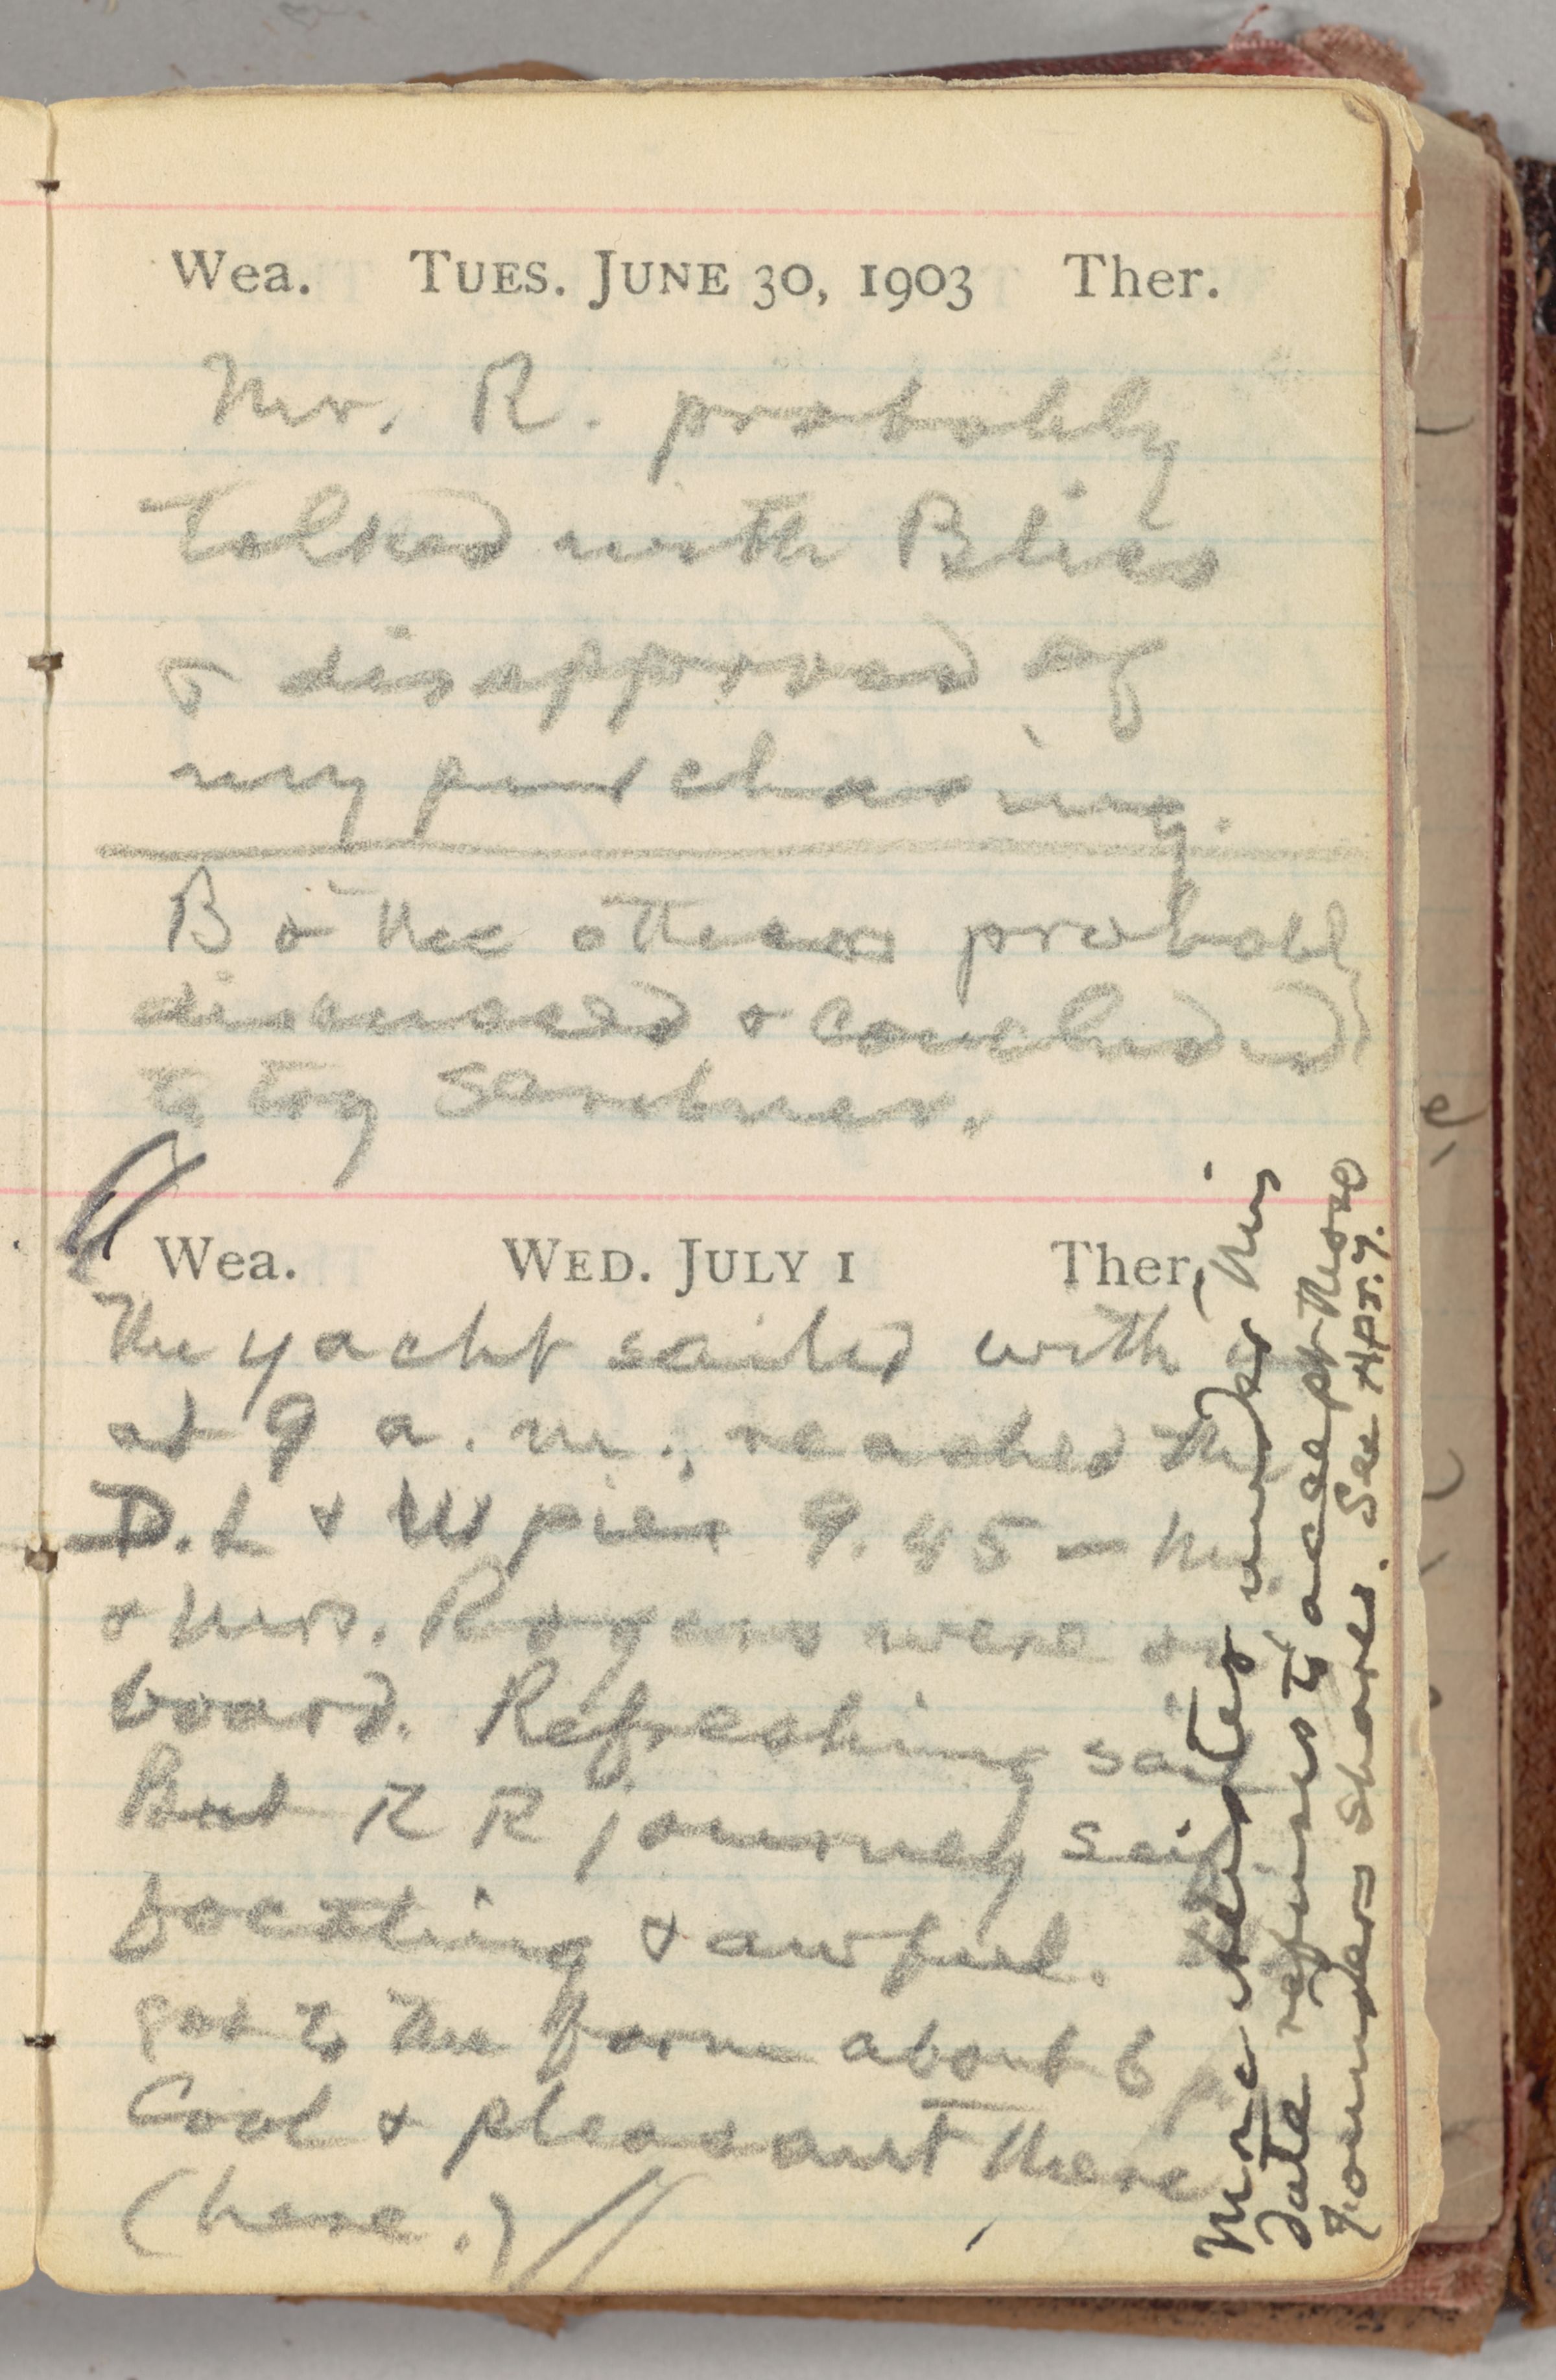 Wea. TUES. JUNE 30, 1903 Ther.
Mr. R. probably
talked with Bliss
& disapproved of
my purchasing.
B & the others probably
discussed & concluded
to try Scribner.
Wea. WED. JULY 1 Ther.
The yacht sailed with
at 9 a. m.; reached the
D. L & W pier 9.45 — Mr.
& Mrs. Rogers were on
board. Refreshing sail
But R R journey
&  awful.
got to the farm about 6 p.
Cool & pleasant there
(here.)
Mr. under this
date refuses to accept those
Founders Shares. See Apr. 7.